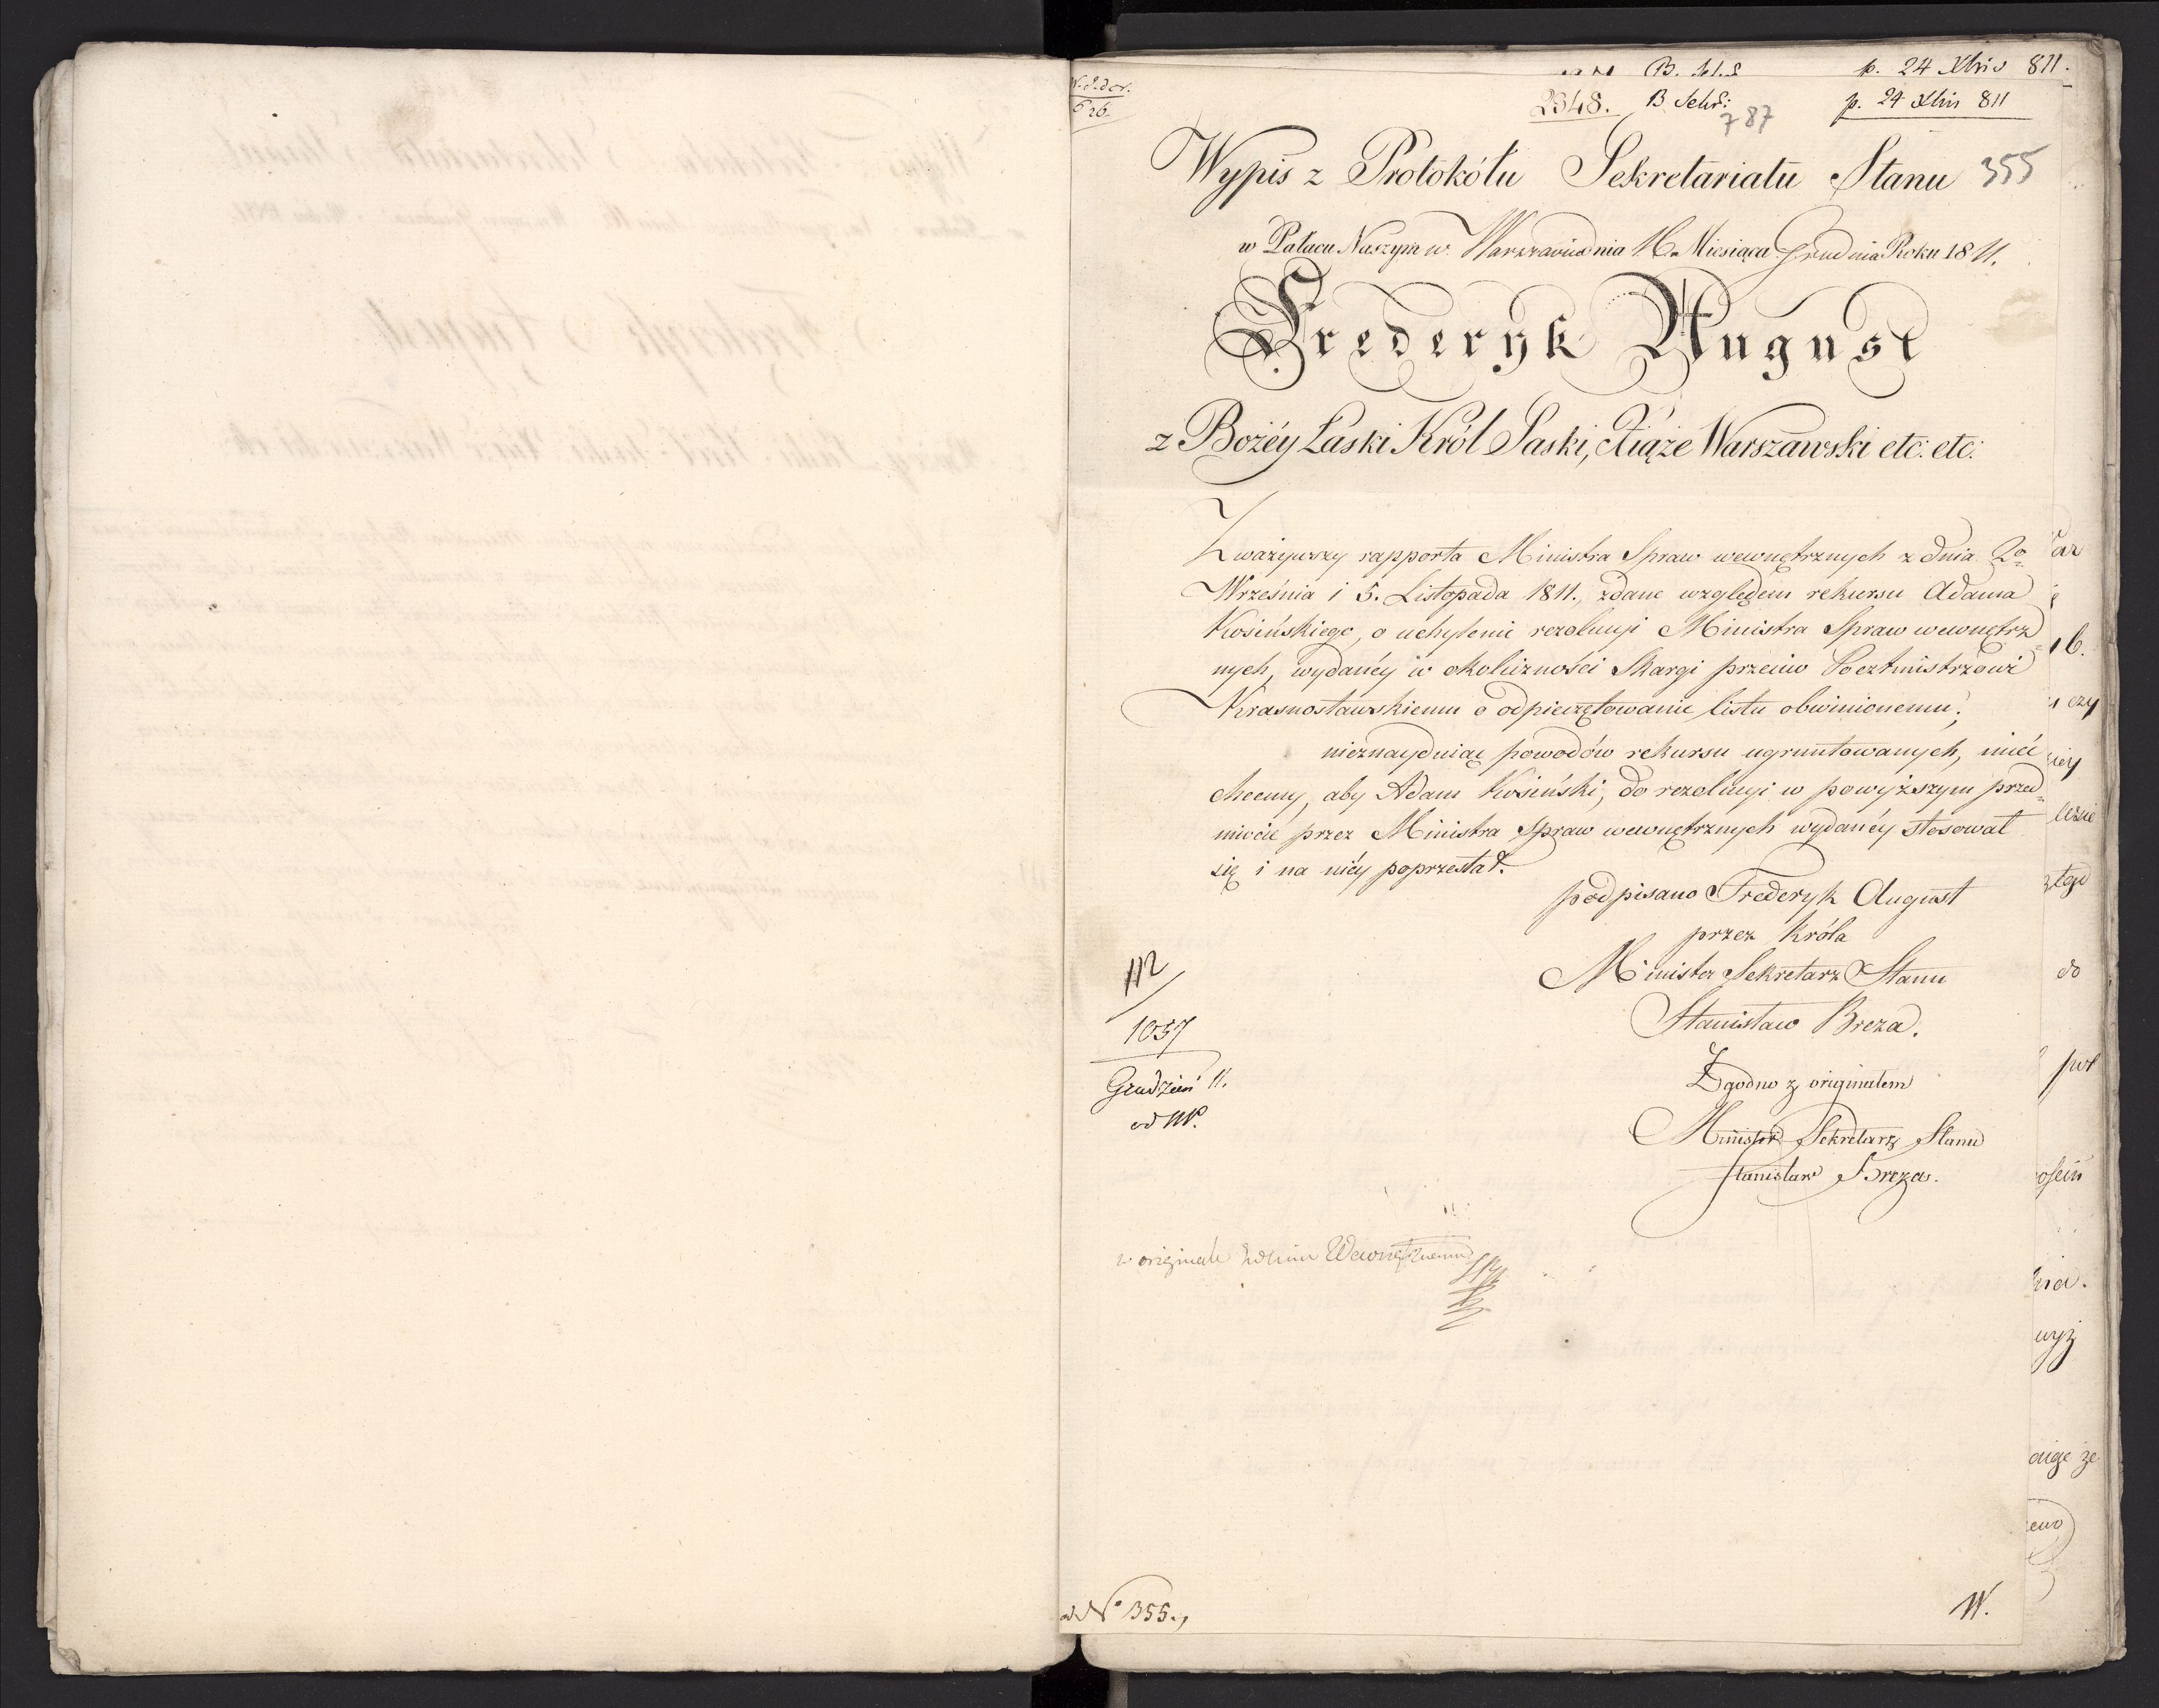 p. 24 Xbris 811.
2348. B Sekr: p. 24 Xbris 811
787
626.
Wypis z Protokółu Sekretariatu Stanu 355
w Pałacu Naszym w Warszawie dnia 16. Miesiąca Grudnia Roku 1811.
Frederyk August
z Bożéy Łaski Król Saski, Xiąże Warszawski etc: etc:
Zważywszy rapporta Ministra Spraw wewnętrznych z dnia 20
Września i 5. Listopada 1811., zdane względem rekursu Adama
Kosińskiego, o uchylenie rezolucyi Ministra Spraw wewnętrz=
nych, wydanéy w okoliczności Skargi przeciw Pocztmistrzowi
Krasnostawskiemu o odpieczętowanie listu obwinionemu;
nieznayduiąc powodów rekursu ugruntowanych, mieć
chcemy, aby Adam Kosiński, do rezolucyi w powyższym przed=
miocie przez Ministra Spraw wewnętrznych wydanéy stosował
się i na niéy poprzestał.
podpisano Frederyk August
przez Króla
Minister Sekretarz Stanu
Stanisław Breza.
Zgodno z originałem
Minister Sekretarz Stanu
Stanisław Breza.
1057
Grudzień 11.
w originale
Wewnętrznemu
ad No 355.,
W.